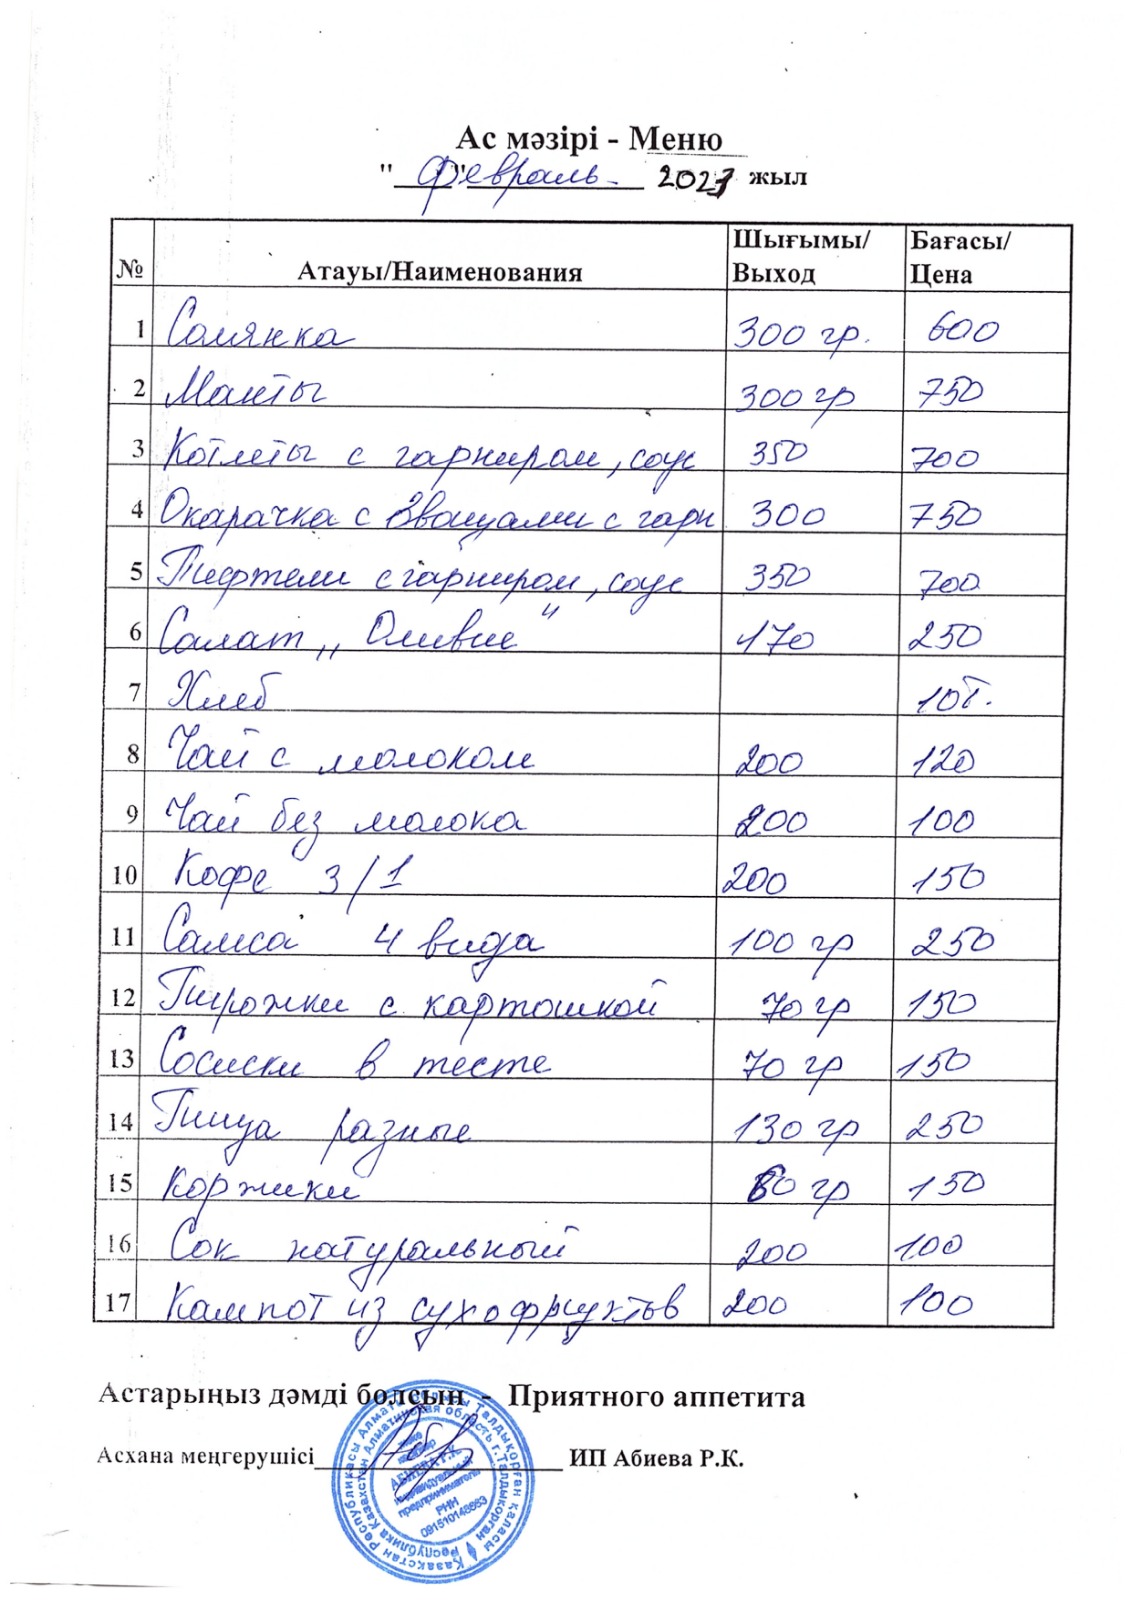 Ас мәзірі - Меню
"___" Февраль 2023 жыл
№ Атауы/Наименования Шығымы/ Выход Бағасы/ Цена
1 Солянка 300 гр. 600
2 Манты 300 гр 750
3 Котлеты с гарниром, соус 350 700
4 Окарачка с Овощами с гарн 300 750
5 Тифтели с гарниром, соус 350 700
6 Салат „Оливие" 170 250
7 Хлеб 10т.
8 Чай с молоком 200 120
9 Чай без молока 200 100
10 Кофе 3/1 200 150
11 Самса 4 вида 100 гр 250
12 Пирожки с картошкой 70 гр 150
13 Сосиски в тесте 70 гр 150
14 Пицца разные 130 гр 250
15 Коржики 60 гр 150
16 Сок натуральный 200 100
17 Кампот из сухофруктов 200 100
Астарыңыз дәмді болсын - Приятного аппетита
Асхана меңгерушісі ИП Абиева Р.К.
Қазақстан Республикасы Алматы облысы Талдықорған қаласы
Республика Казахстан Алматинская область г.Талдыкорган
Жеке кәсіпкер
АБИЕВА Р.К.
индивидуальный
предприниматель
РНН